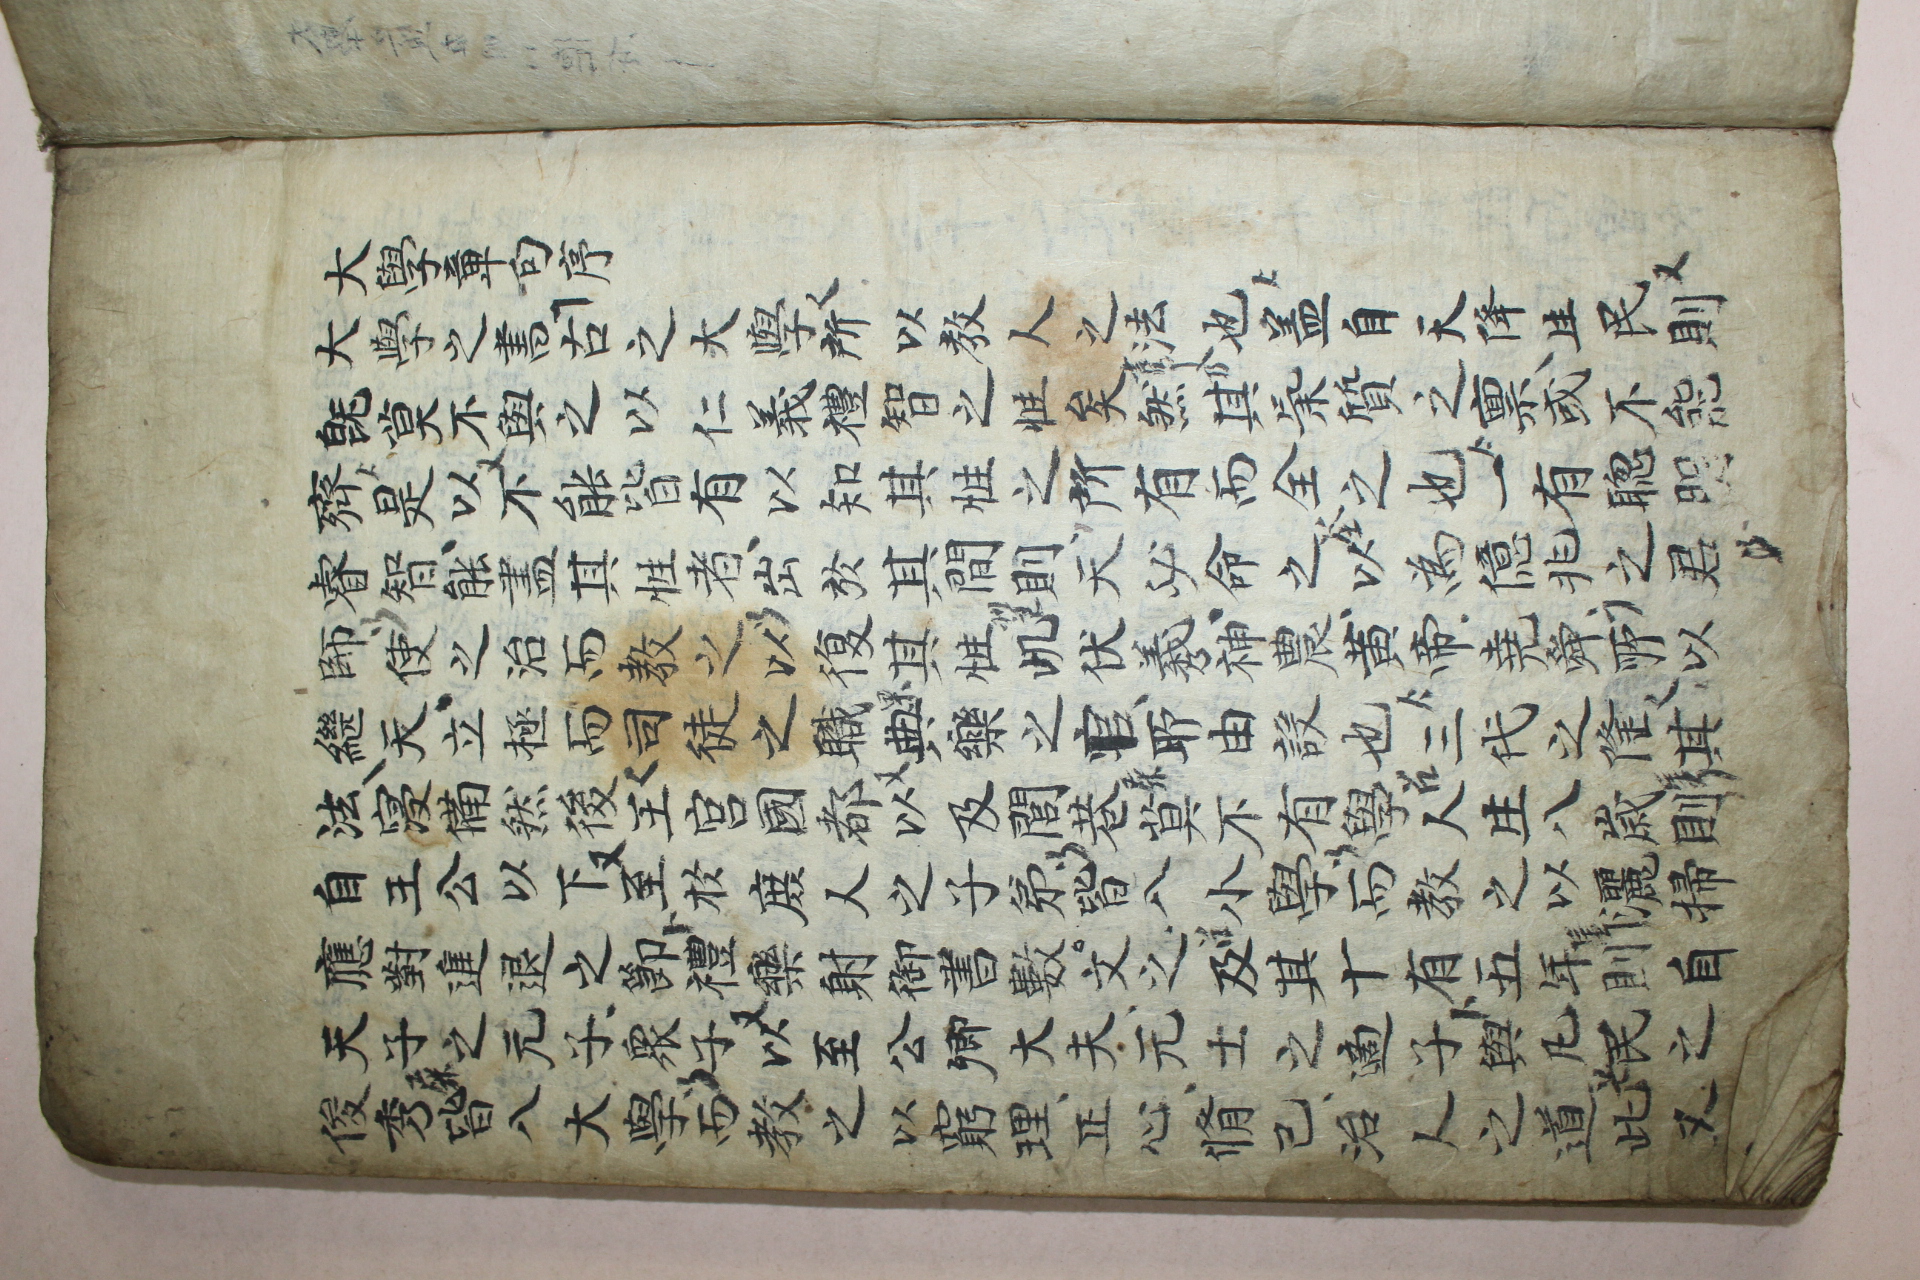 大學章句序
大學之書古之大學所以教人之法也盖自天降生民則
既莫不與之以仁義禮智之性矣然其氣質之稟或不能
齊是以不能皆有以知其性之所有而全之也一有聰明
睿智能盡其性者出於其間則天必命之以為億兆之君
師使之治而教之以復其性此伏羲神農黃帝堯舜所以
繼天立極而司徒之職典樂之官所由設也三代之隆其
法寖備然後王宮國都以及閭巷莫不有學人生八歲則
自王公以下至於庶人之子弟皆入小學而教之以灑掃
應對進退之節禮樂射御書數文之及其十有五年則自
天子之元子衆子以至公卿大夫元士之適子與凡民之
俊秀皆入大學而教之以窮理正心脩己治人之道此又